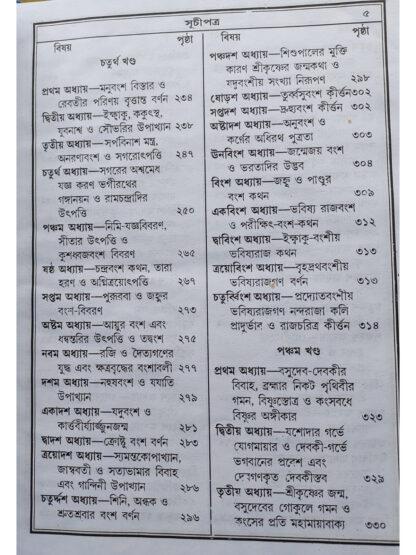 সূচীপত্র
৫
বিষয়
পৃষ্ঠা
চতুর্থ খণ্ড
প্রথম অধ্যায়—মনুবংশ বিস্তার ও
রেবতীর পরিণয় বৃত্তান্ত বর্ণন ২৩৪
দ্বিতীয় অধ্যায়—ইক্ষ্বাকু, ককুৎস্থ,
যুবনাশ্ব ও সৌভরির উপাখ্যান ২৩৮
তৃতীয় অধ্যায়—সর্পবিনাশ মন্ত্র,
অনরণ্যবংশ ও সগরোৎপত্তি ২৪৭
চতুর্থ অধ্যায়—সগরের অশ্বমেধ
যজ্ঞ করণ ভগীরথের
গঙ্গানয়ন ও রামচন্দ্রাদির
উৎপত্তি ২৫০
পঞ্চম অধ্যায়—নিমি-যজ্ঞবিবরণ,
সীতার উৎপত্তি ও
কুশধ্বজবংশ বিবরণ ২৬৫
ষষ্ঠ অধ্যায়—চন্দ্রবংশ কথন, তারা
হরণ ও অগ্নিত্রয়োৎপত্তি ২৬৭
সপ্তম অধ্যায়—পুরূরবা ও জহ্নুর
বংশ-বিবরণ ২৭৩
অষ্টম অধ্যায়—আয়ুর বংশ এবং
ধন্বন্তরির উৎপত্তি ও তদ্বংশ ২৭৫
নবম অধ্যায়—রজি ও দৈত্যগণের
যুদ্ধ এবং ক্ষত্রবৃদ্ধের বংশাবলী ২৭৭
দশম অধ্যায়—নহুষবংশ ও যযাতি
উপাখ্যান ২৭৯
একাদশ অধ্যায়—যদুবংশ ও
কার্ত্তবীর্য্যার্জ্জুনজন্ম ২৮১
দ্বাদশ অধ্যায়—ক্রোষ্টু বংশ বর্ণন ২৮৩
ত্রয়োদশ অধ্যায়—স্যমন্তকোপাখ্যান,
জাম্ববতী ও সত্যভামার বিবাহ
এবং গান্দিনী উপাখ্যান ২৮৬
চতুর্দ্দশ অধ্যায়—শিনি, অন্ধক ও
শ্রুতশ্রবার বংশ বর্ণন ২৯৬
বিষয়
পৃষ্ঠা
পঞ্চদশ অধ্যায়—শিশুপালের মুক্তি
কারণ শ্রীকৃষ্ণের জন্মকথা ও
যদুবংশীয় সংখ্যা নিরূপণ ২৯৮
ষোড়শ অধ্যায়—তুর্ব্বসুবংশ কীর্ত্তন ৩০২
সপ্তদশ অধ্যায়—দ্রুহ্যুবংশ কীর্ত্তন ৩০২
অষ্টাদশ অধ্যায়—অনুবংশ ও
কর্ণের অধিরথ পুত্রতা ৩০৩
ঊনবিংশ অধ্যায়—জন্মেজয় বংশ
ও ভরতাদির উদ্ভব ৩০৪
বিংশ অধ্যায়—জহ্নু ও পাণ্ডুর
বংশ কথন ৩০৯
একবিংশ অধ্যায়—ভবিষ্য রাজবংশ
ও পরীক্ষিৎ-বংশ-কথন ৩১২
দ্বাবিংশ অধ্যায়—ইক্ষ্বাকু-বংশীয়
ভবিষ্যরাজ কথন ৩১৩
ত্রয়োবিংশ অধ্যায়—বৃহদ্রথবংশীয়
ভবিষ্যরাজগণ বর্ণন ৩১৩
চতুর্ব্বিংশ অধ্যায়—প্রদ্যোতবংশীয়
ভবিষ্যরাজগণ নন্দরাজা কলি
প্রাদুর্ভাব ও রাজচরিত্র কীর্ত্তন ৩১৪
পঞ্চম খণ্ড
প্রথম অধ্যায়—বসুদেব-দেবকীর
বিবাহ, ব্রহ্মার নিকট পৃথিবীর
গমন, বিষ্ণুস্তোত্র ও কংসবধে
বিষ্ণুর অঙ্গীকার ৩২৩
দ্বিতীয় অধ্যায়—যশোদার গর্ভে
যোগমায়ার ও দেবকী-গর্ভে
ভগবানের প্রবেশ এবং
দেবগণকৃত দেবকীস্তব ৩২৯
তৃতীয় অধ্যায়—শ্রীকৃষ্ণের জন্ম,
বসুদেবের গোকুলে গমন ও
কংসের প্রতি মহামায়াবাক্য ৩৩০